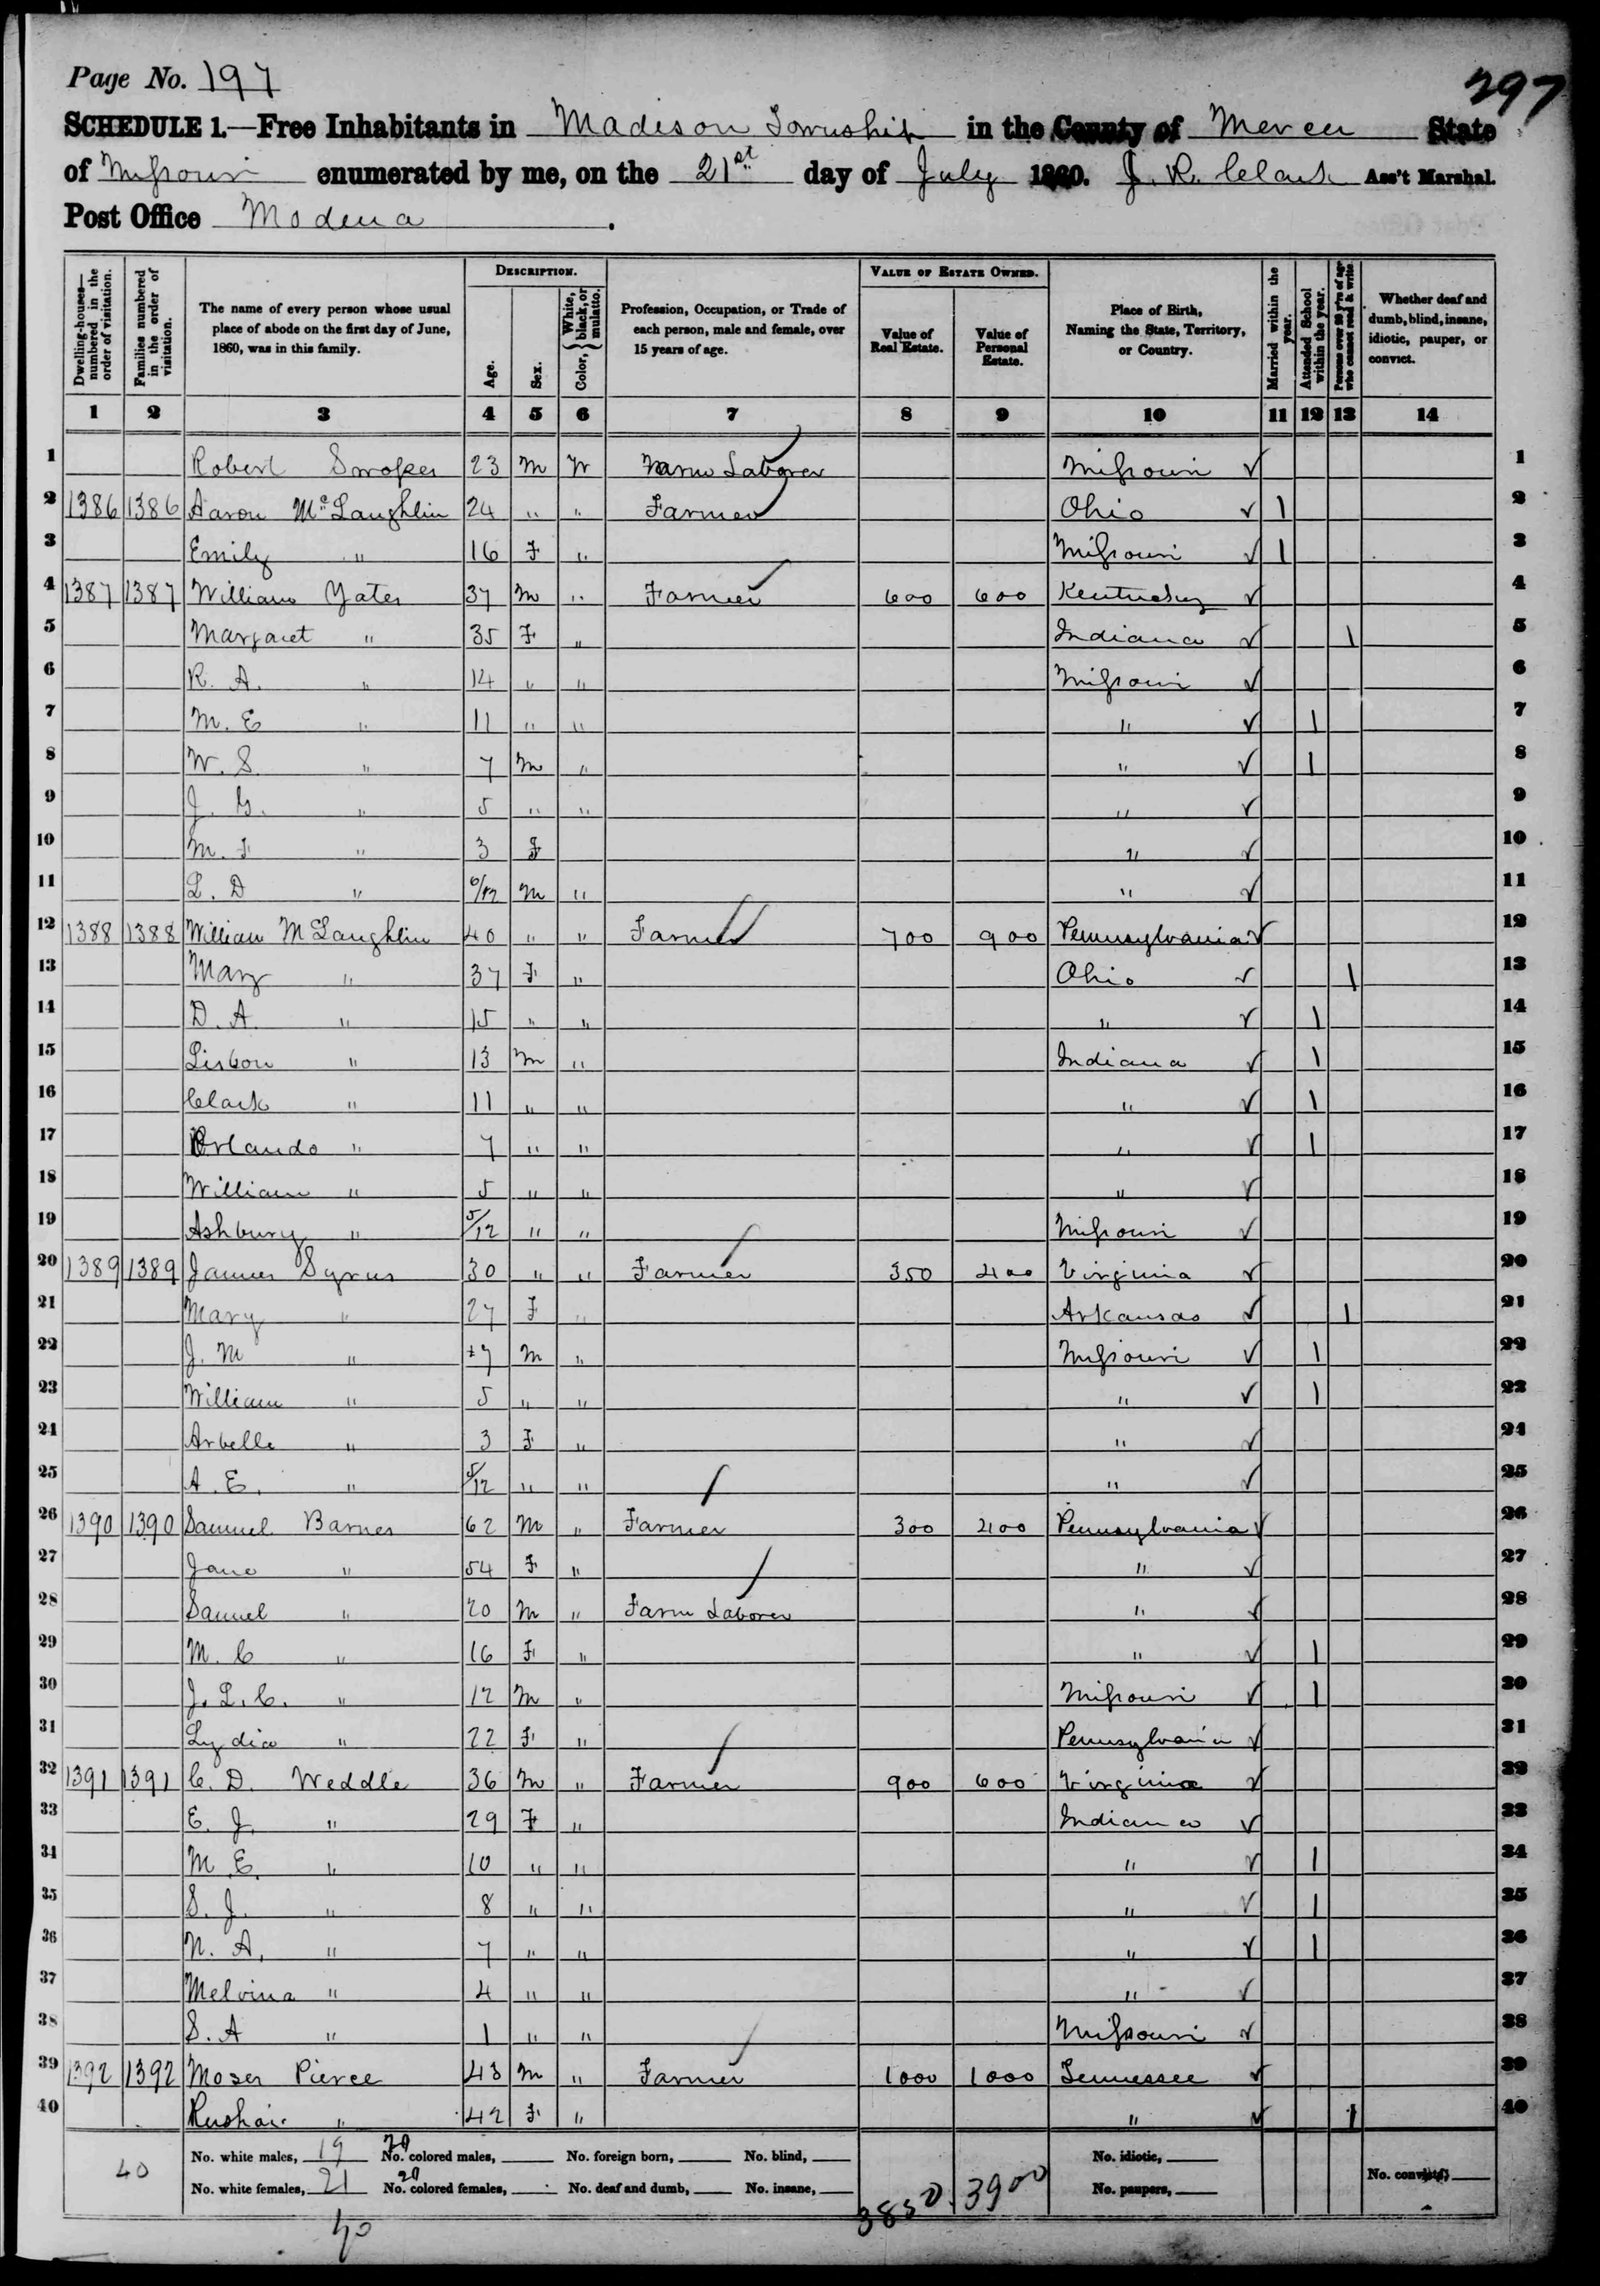 Page No. 197
297
SCHEDULE 1.—Free Inhabitants in Madison Township in the County of Mercer State
of Missouri enumerated by me, on the 21st day of July 1860. J. R. Clark Ass't Marshal.
Post Office Modena.
Dwelling-houses—numbered in the order of visitation.
Families numbered in the order of visitation.
The name of every person whose usual place of abode on the first day of June, 1860, was in this family.
DESCRIPTION.
Age.
Sex.
Color, { White, black, or mulatto.
Profession, Occupation, or Trade of each person, male and female, over 15 years of age.
VALUE OF ESTATE OWNED.
Value of Real Estate.
Value of Personal Estate.
Place of Birth, Naming the State, Territory, or Country.
Married within the year.
Attended School within the year.
Persons over 20 y'rs of age who cannot read & write.
Whether deaf and dumb, blind, insane, idiotic, pauper, or convict.
1 2 3 4 5 6 7 8 9 10 11 12 13 14
1 Robert 23 M W Farm Laborer Missouri ✓ 1
2 1386 1386 Aaron McLaughlin 24 " " Farmer Ohio ✓ 1 2
3 Emily " 16 F " Missouri ✓ 1 3
4 1387 1387 William Yates 37 M " Farmer 600 600 Kentucky ✓ 4
5 Margaret " 35 F " Indiana ✓ 1 5
6 R. A. " 14 " " Missouri ✓ 6
7 M. E " 11 " " " ✓ 1 7
8 W. S. " 7 M " " ✓ 1 8
9 J. G. " 5 " " " ✓ 9
10 M. F " 3 F " ✓ 10
11 L. D " 6/12 M " " ✓ 11
12 1388 1388 William McLaughlin 40 " " Farmer 700 900 Pennsylvania ✓ 12
13 Mary " 37 F " Ohio ✓ 1 13
14 D. A. " 15 " " " ✓ 1 14
15 Lisbon " 13 M " Indiana ✓ 1 15
16 Clark " 11 " " " ✓ 1 16
17 Orlando " 7 " " " ✓ 1 17
18 William " 5 " " " ✓ 18
19 Ashbury " 5/12 " " Missouri ✓ 19
20 1389 1389 James Syrus 30 " " Farmer 350 400 Virginia ✓ 20
21 Mary " 27 F " Arkansas ✓ 1 21
22 J. M " 7 M " Missouri ✓ 1 22
23 William " 5 " " " ✓ 1 23
24 Arbelle " 3 F " " ✓ 24
25 A. E. " 5/12 " " " ✓ 25
26 1390 1390 Samuel Barnes 62 M " Farmer 300 400 Pennsylvania ✓ 26
27 Jane " 54 F " " ✓ 27
28 Samuel " 20 M " Farm Laborer " ✓ 28
29 M. C " 16 F " " ✓ 1 29
30 J. L. C. " 12 M " Missouri ✓ 1 30
31 Lydia " 22 F " Pennsylvania ✓ 31
32 1391 1391 C. D. Weddle 36 M " Farmer 900 600 Virginia ✓ 32
33 E. J. " 29 F " Indiana ✓ 33
34 M. E. " 10 " " " ✓ 1 34
35 S. J. " 8 " " " ✓ 1 35
36 N. A. " 7 " " " ✓ 1 36
37 Melvina " 4 " " " ✓ 37
38 S. A " 1 " " Missouri ✓ 38
39 1392 1392 Moses Pierce 43 M " Farmer 1000 1000 Tennessee ✓ 39
40 " 42 F " " ✓ 1 40
40 No. white males, 19 20 No. colored males, No. foreign born, No. blind, No. idiotic,
No. white females, 21 20 No. colored females, No. deaf and dumb, No. insane, 3850 3900 No. paupers, No. convicts,
40